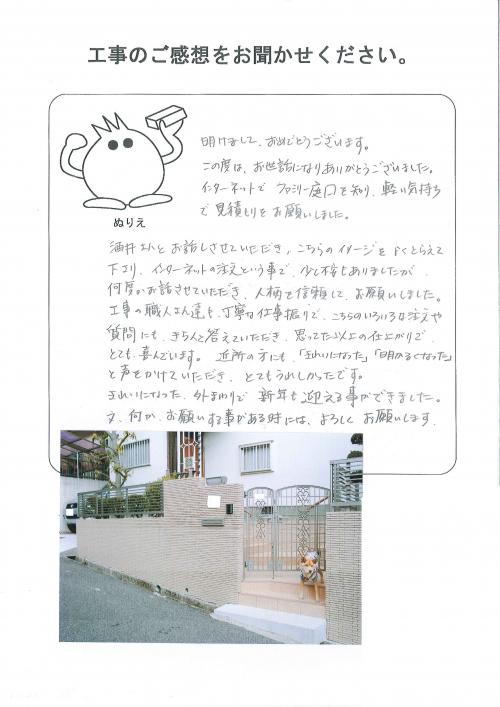 工事のご感想をお聞かせください。
ぬりえ
明けまして、おめでとうございます。
この度は、お世話になりありがとうございました。
インターネットで ファミリー庭口を知り、軽い気持ち
で見積もりをお願いしました。
酒井さんとお話しさせていただき、こちらのイメージをよくとらえて
下さり、インターネットの注文という事で、少し不安もありましたが、
何度かお話させていただき、人柄を信頼して、お願いしました。
工事の職人さん達も、丁寧な仕事振りで、こちらのいろいろな注文や
質問にも、きちんと答えていただき、思ってた以上の仕上がりで、
とても、喜んでいます。 近所の方にも、「きれいになった」「明かるくなった」
と声をかけていただき、とてもうれしかったです。
きれいになった、外まわりで 新年も迎える事ができました。
又、何か、お願いする事がある時には、よろしく お願いします。